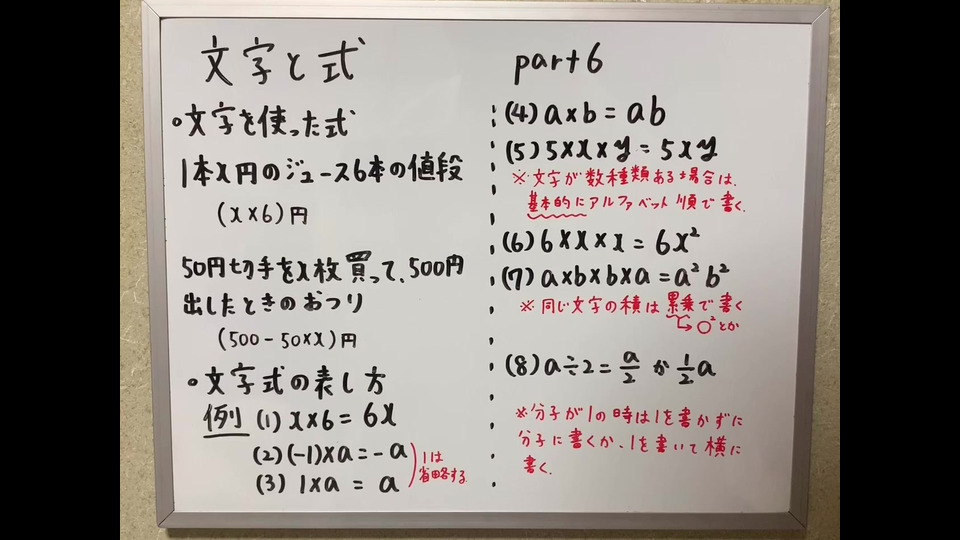 文字と式
part6
•文字を使った式
1本x円のジュース6本の値段
(x×6)円
50円切手をx枚買って、500円
出したときのおつり
(500-50×x)円
•文字式の表し方
例 (1) x×6=6x
(2)(-1)×a=-a
(3) 1×a=a
1は
省略する
(4) a×b=ab
(5) 5×x×y=5xy
※文字が数種類ある場合は、
基本的にアルファベット順で書く。
(6) 6×x×x=6x²
(7) a×b×b×a=a²b²
※同じ文字の積は累乗で書く
↳○²とか
(8) a÷2=a/2 か 1/2a
※分子が1の時は1を書かずに
分子に書くか、1を書いて横に
書く。